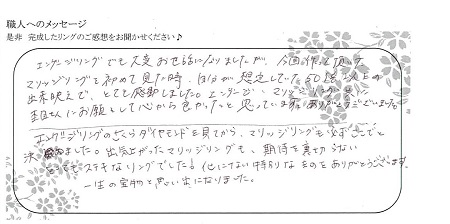 職人へのメッセージ
是非 完成したリングのご感想をお聞かせください♪
エンゲージリングでも大変お世話になりましたが、今回作って頂いた
マリッジリングを初めて見た時、自分が想定していた50倍以上の
出来映えで、とても感動しました。エンゲージ、マリッジリング
にお願いして心から良かったと思っています。ありがとうございました。
エンゲージリングのさくらダイヤモンドを見てから、マリッジリングも必ずここでと
決めました。出来上がったマリッジリングも、期待を裏切らない
とてもステキなリングでした!他にない特別なものをありがとうございます。
一生の宝物と思い出になりました。